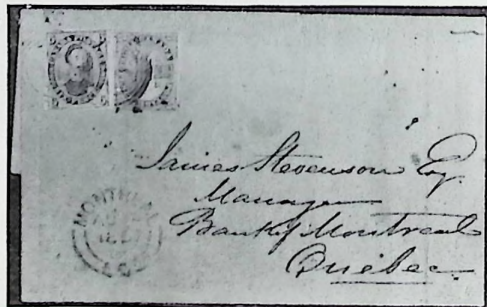 James Stevenson Esq
Manager
Bank of Montreal
Quebec
MONTREAL